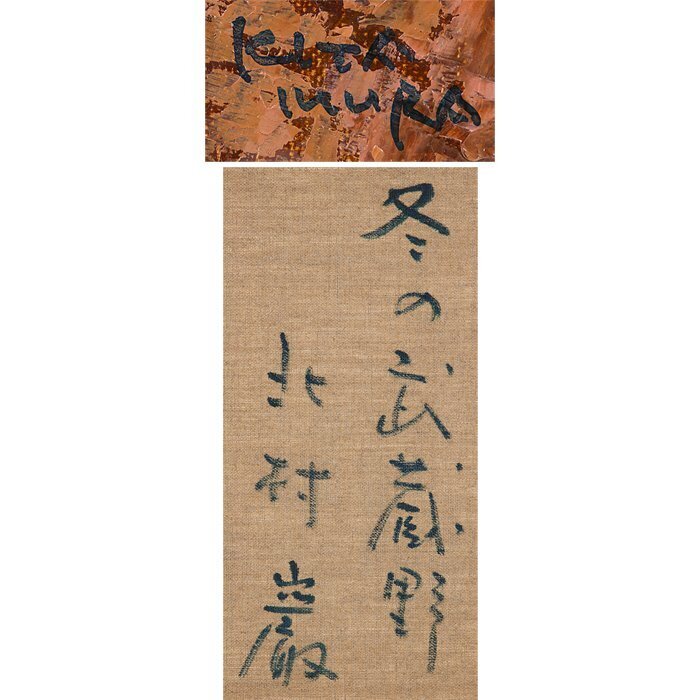 KITA
MURA
冬の武蔵野
北村巌